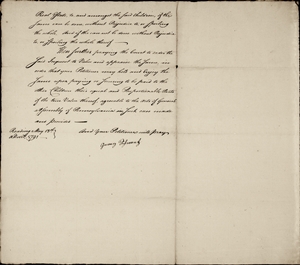 Real Estate to and amongst the said Children, if the
same can be done without Prejudice to or Spoiling
the whole. And if the same can not be done without Prejudice
to or Spoiling the whole thereof.
Then further praying the Court to order the
said Inquest to Value and appraise the same, in
order that your Petitioner may hold and enjoy the
same upon paying or securing to be paid to the
other Children their equal and Proportionable Parts
of the true Value thereof agreeable to the Acts of General
Assembly of Pennsylvania in such case made
and provided
Reading May
1791
And your Petitioner will pray